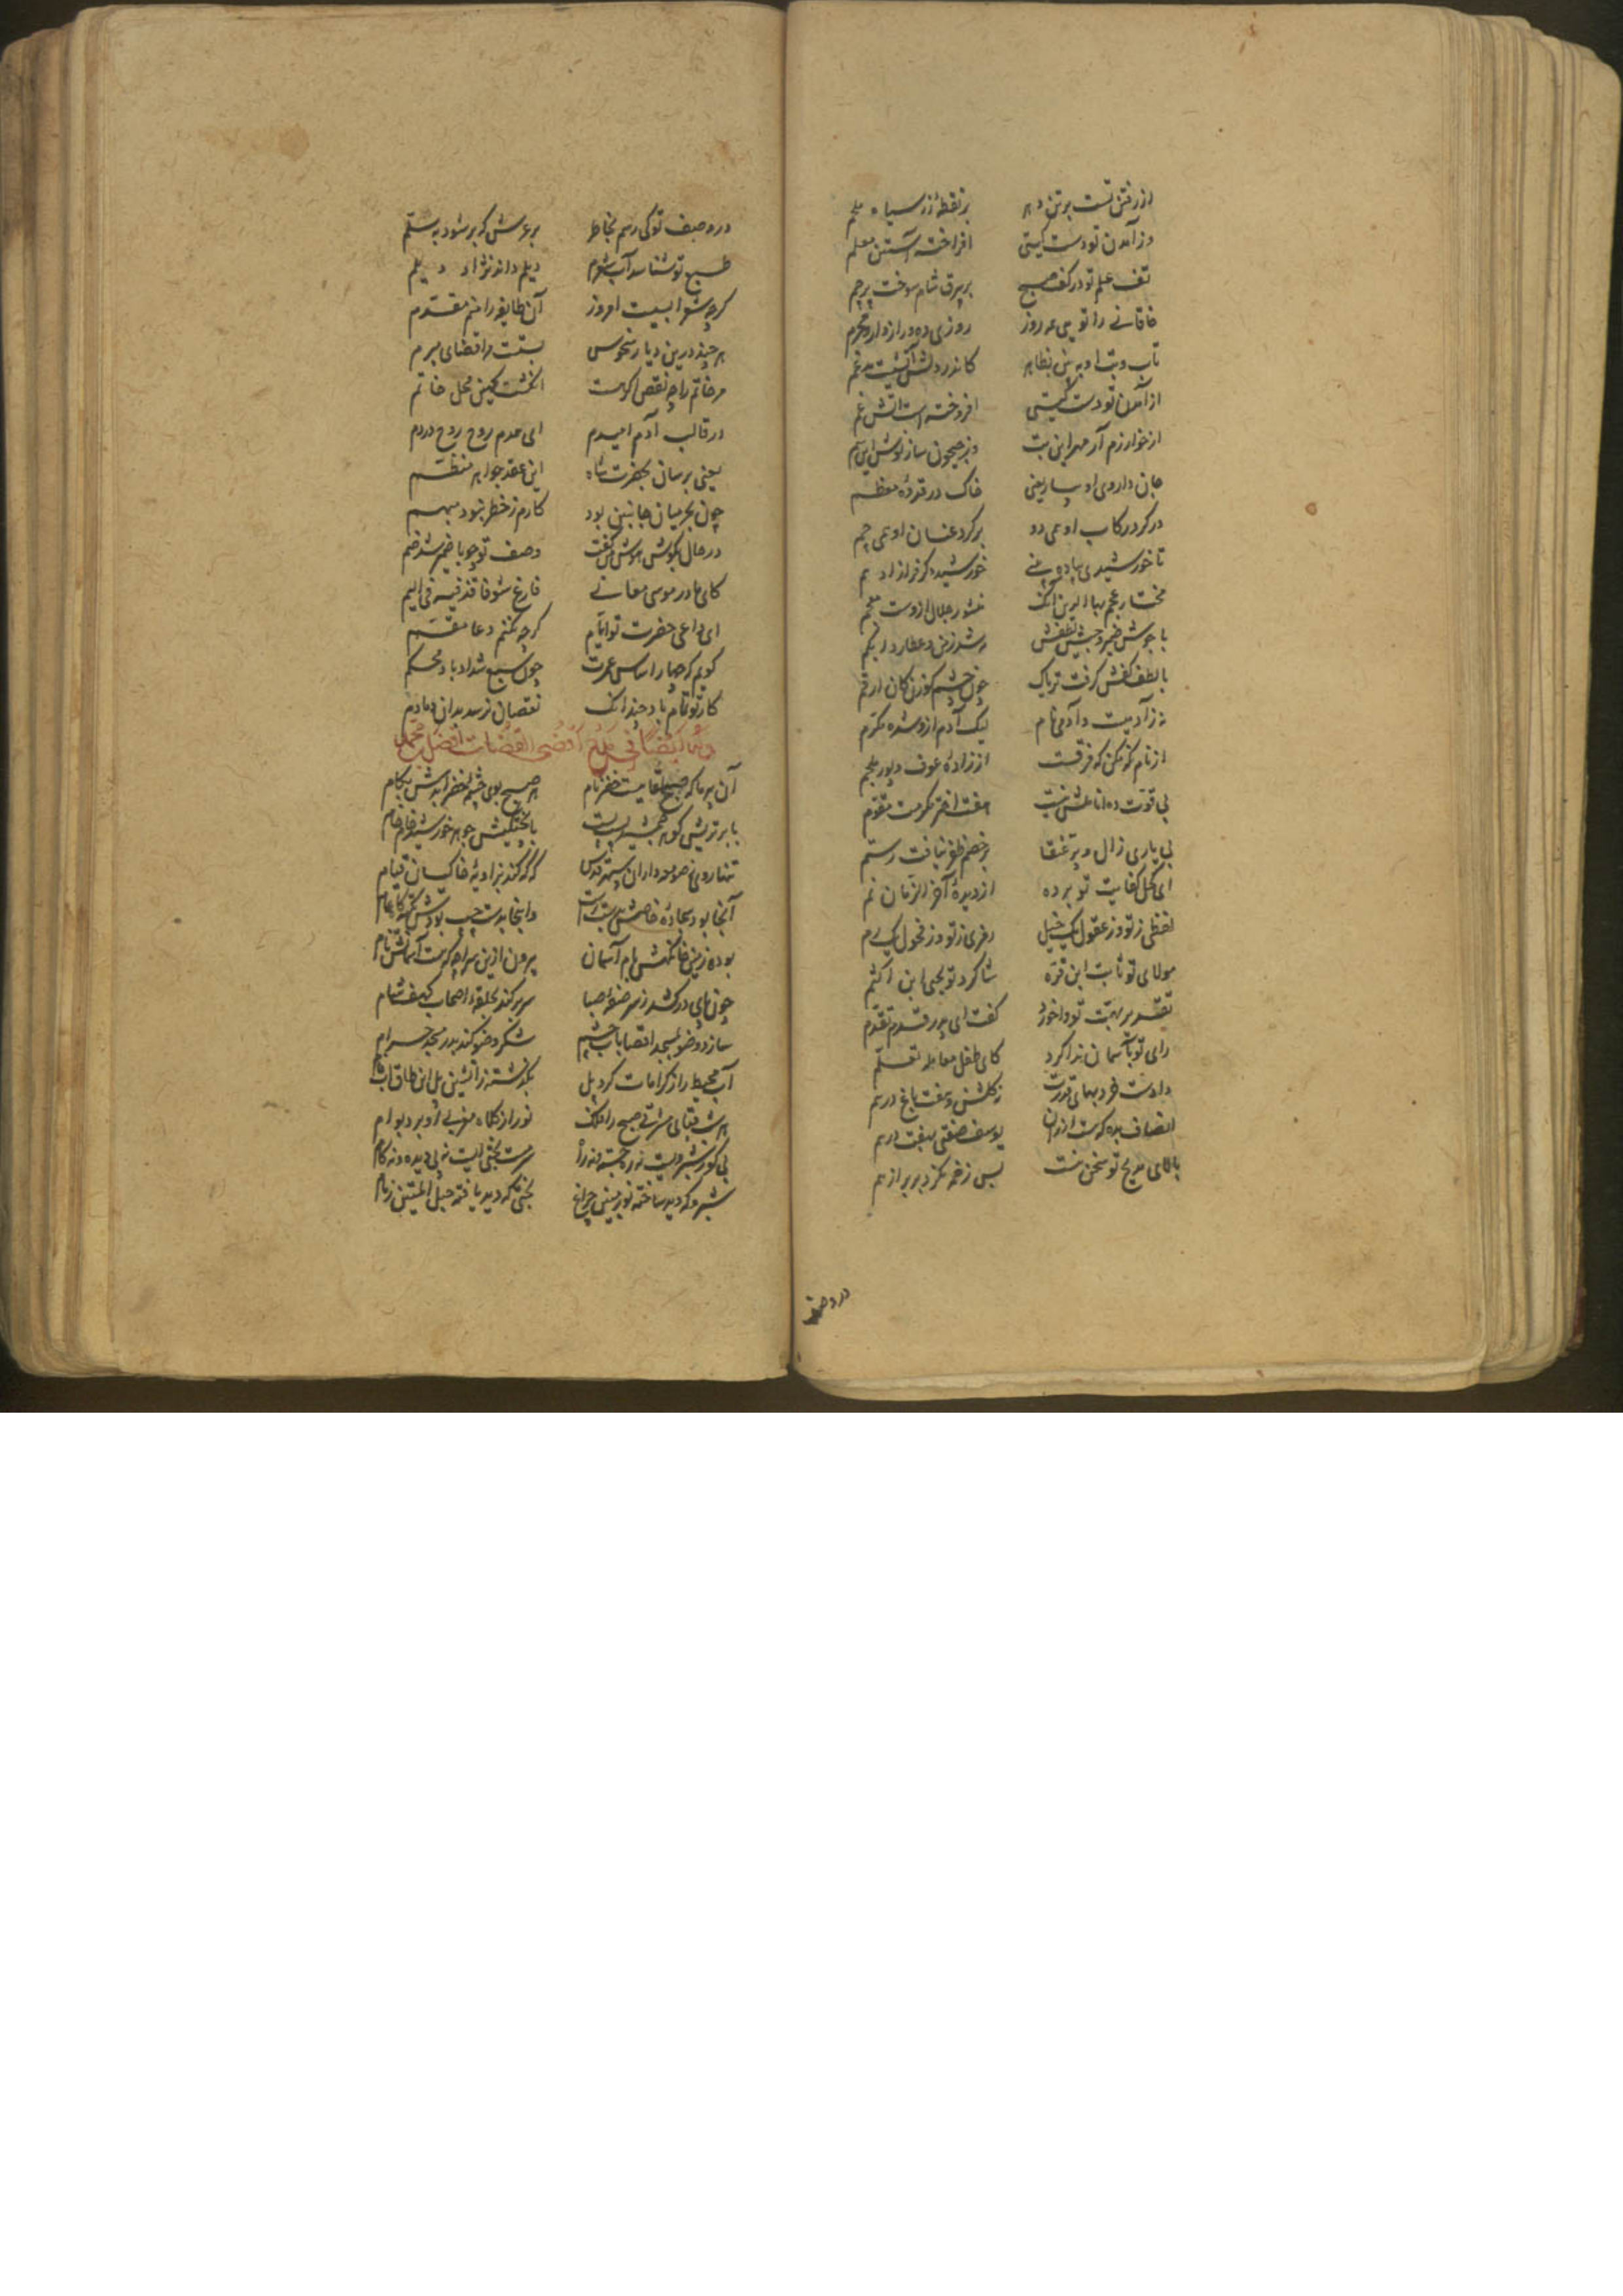 از رفتن تست بر تن دهر بر نقطهٔ زر سیاه ملحم
وز آمدن تو دست گیتی افراخته آستین معلم
تف علم تو در کف صبح بر بیرق شام سوخت پرچم
خاقانی را تویی همه روز روزی ده و رازدار و محرم
تاب و تب او ببین بظاهر کاندر دلش آتشیست مدغم
از آمدن تو دست گیتی افروخته است آتش غم
از خوارزم آر مهر این تب وز جیحون ساز نوش این سم
جان داروی او بساز یعنی خاک در قدوهٔ معظم
در گرد رکاب او همی دو بر گرد عنان او همی چم
تا خورشیدی پیاده بینی خورشید دگر فراز ادهم
مختار عجم بهاء الدین آنک منشور جلال ازوست معجم
با جوش ضمیر و جیش نطقش مه شد زمن و عطارد ابکم
با لطف کفش گرفت تریاک چون چشم گوزن کان ارقم
نه زآدمیست و آدمی نام لیک آدم ازو شده مکرم
از نام که مکن که فرقست از زادهٔ عوف و پور ملجم
بی قوت ده اناملش نیست هفت اختر مکرمت مقوم
بی یاری زال و پر عنقا بر خصم ظفر نیافت رستم
ای کحل کفایت تو برده از دیدهٔ آخر الزمان نم
لفظی ز تو وز عقول یک خیل رمزی ز تو وز فحول یک رم
مولای تو ثابت ابن قره شاگرد تو یحیی ابن اکثم
تقدیر بهمت تو داخورد گفت ای پدر قدم تقدم
رای تو باسمان ندا کرد کای طفل معامله تعلم
دادت خرد بهای قدرت نه گلشن و هفت باغ درهم
انصاف بده که هست ارزان یوسف صفتی بهفت درهم
بالای مدیح تو سخن نیست بس زخمه نگردد بریر از بم
در وصف
در وصف تو کی رسم بخاطر بر عرش که بر شود بسلم
طبع تو شناسد آب شعرم دیلم داند نژاد دیلم
گرچه شعرا بسیست امروز آن طایفه را منم مقدم
هر چند درین دیار منحوس بستست مرا قضای مبرم
مر خاتم را چه نقص اگر هست انگشت کهین محل خاتم
در قالب آدم امیدم ای همدم روح روح در دم
یعنی برسان بحضرت شاه این عقد جواهر منظم
چون بحر میان جانبین بود کارم ز خطر نبود مبهم
در حال بگوش هوشش گفت وصف تو چو با ضمیر شد ضم
کای مادر موسی معانی فارغ شو فاقذفیه فی الیم
ای داعی حضرت تو ایام گرچه نکنم دعا مقسم
گویم که حصار اساس عمرت چون سبع شداد باد محکم
کار تو تمام باد چندانک نقصان نرسد بدان دمادم
وله ایضا فی مدح اقضی القضات افضل محمد
آن پیر ما که صبح لقاییست خضر نام هر صبح بوی چشمهٔ خضر آیدش بکام
با برتریش گوهر جمشید پست پست با پختگیش جوهر خورشید خام خام
تنها رو چو صومعه داران و مسند قدس گه گه کند بزاویهٔ خاکیان قیام
آنجا بود سجادهٔ خاصش بدست راست و اینجا بدست چپ بودش تکیه گاه عام
بوده زمین خانگهش بام آسمان بیرون ازین سراچه که هست آسمانش نام
چون پای در کشد ز سر صفهٔ صبا سر بر کند بحلقهٔ اصحاب کهف شام
سازد وضو بمسجد اقصا بآب چشم شکر وضو کند بدر مسجد حرام
آب محیط را ز کرامات کرده پل بگذشته ز آتشین پل این طاق آب فام
هر شب قبای مشرقی صبح را فلک نور از کلاه مغربی او برد بوام
بی گوز شبرویست نه ره جسته و نه راه سرمست بختییست نه پی دیده و نه گام
شبرو که دید ساخته نور مبین چراغ بختی که دید یافته حبل المتین زمام